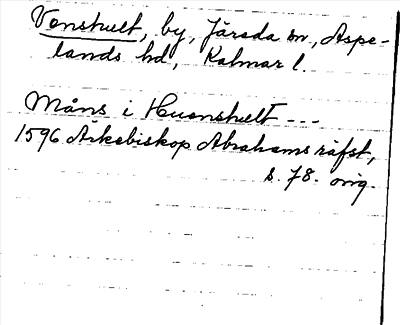 Venshult, by, Järeda sn, Aspe-
lands hd, Kalmar l.
Måns i Huenshult ---
1596 Ärkebiskop Abrahams räfst,
s. 78. orig.